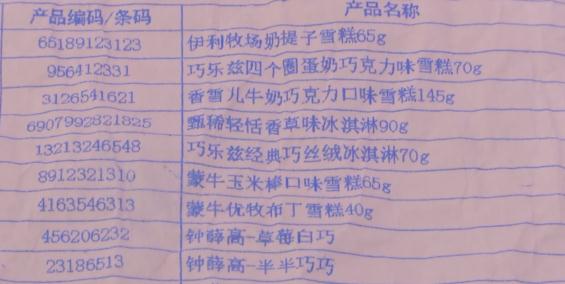 产品编码/条码 产品名称
65189123123 伊利牧场奶提子雪糕65g
956412331 巧乐兹四个圈蛋奶巧克力味雪糕70g
3126541621 香雪儿牛奶巧克力口味雪糕145g
6907992821825 甄稀轻恬香草味冰淇淋90g
13213246548 巧乐兹经典巧丝绒冰淇淋70g
8912321310 蒙牛玉米棒口味雪糕65g
4163546313 蒙牛优牧布丁雪糕40g
456206232 钟薛高-草莓白巧
23186513 钟薛高-半半巧巧